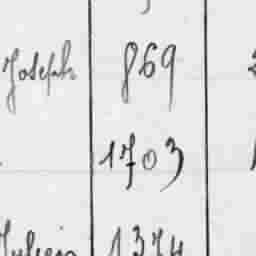 Joseph 869
1703
Julien 1374